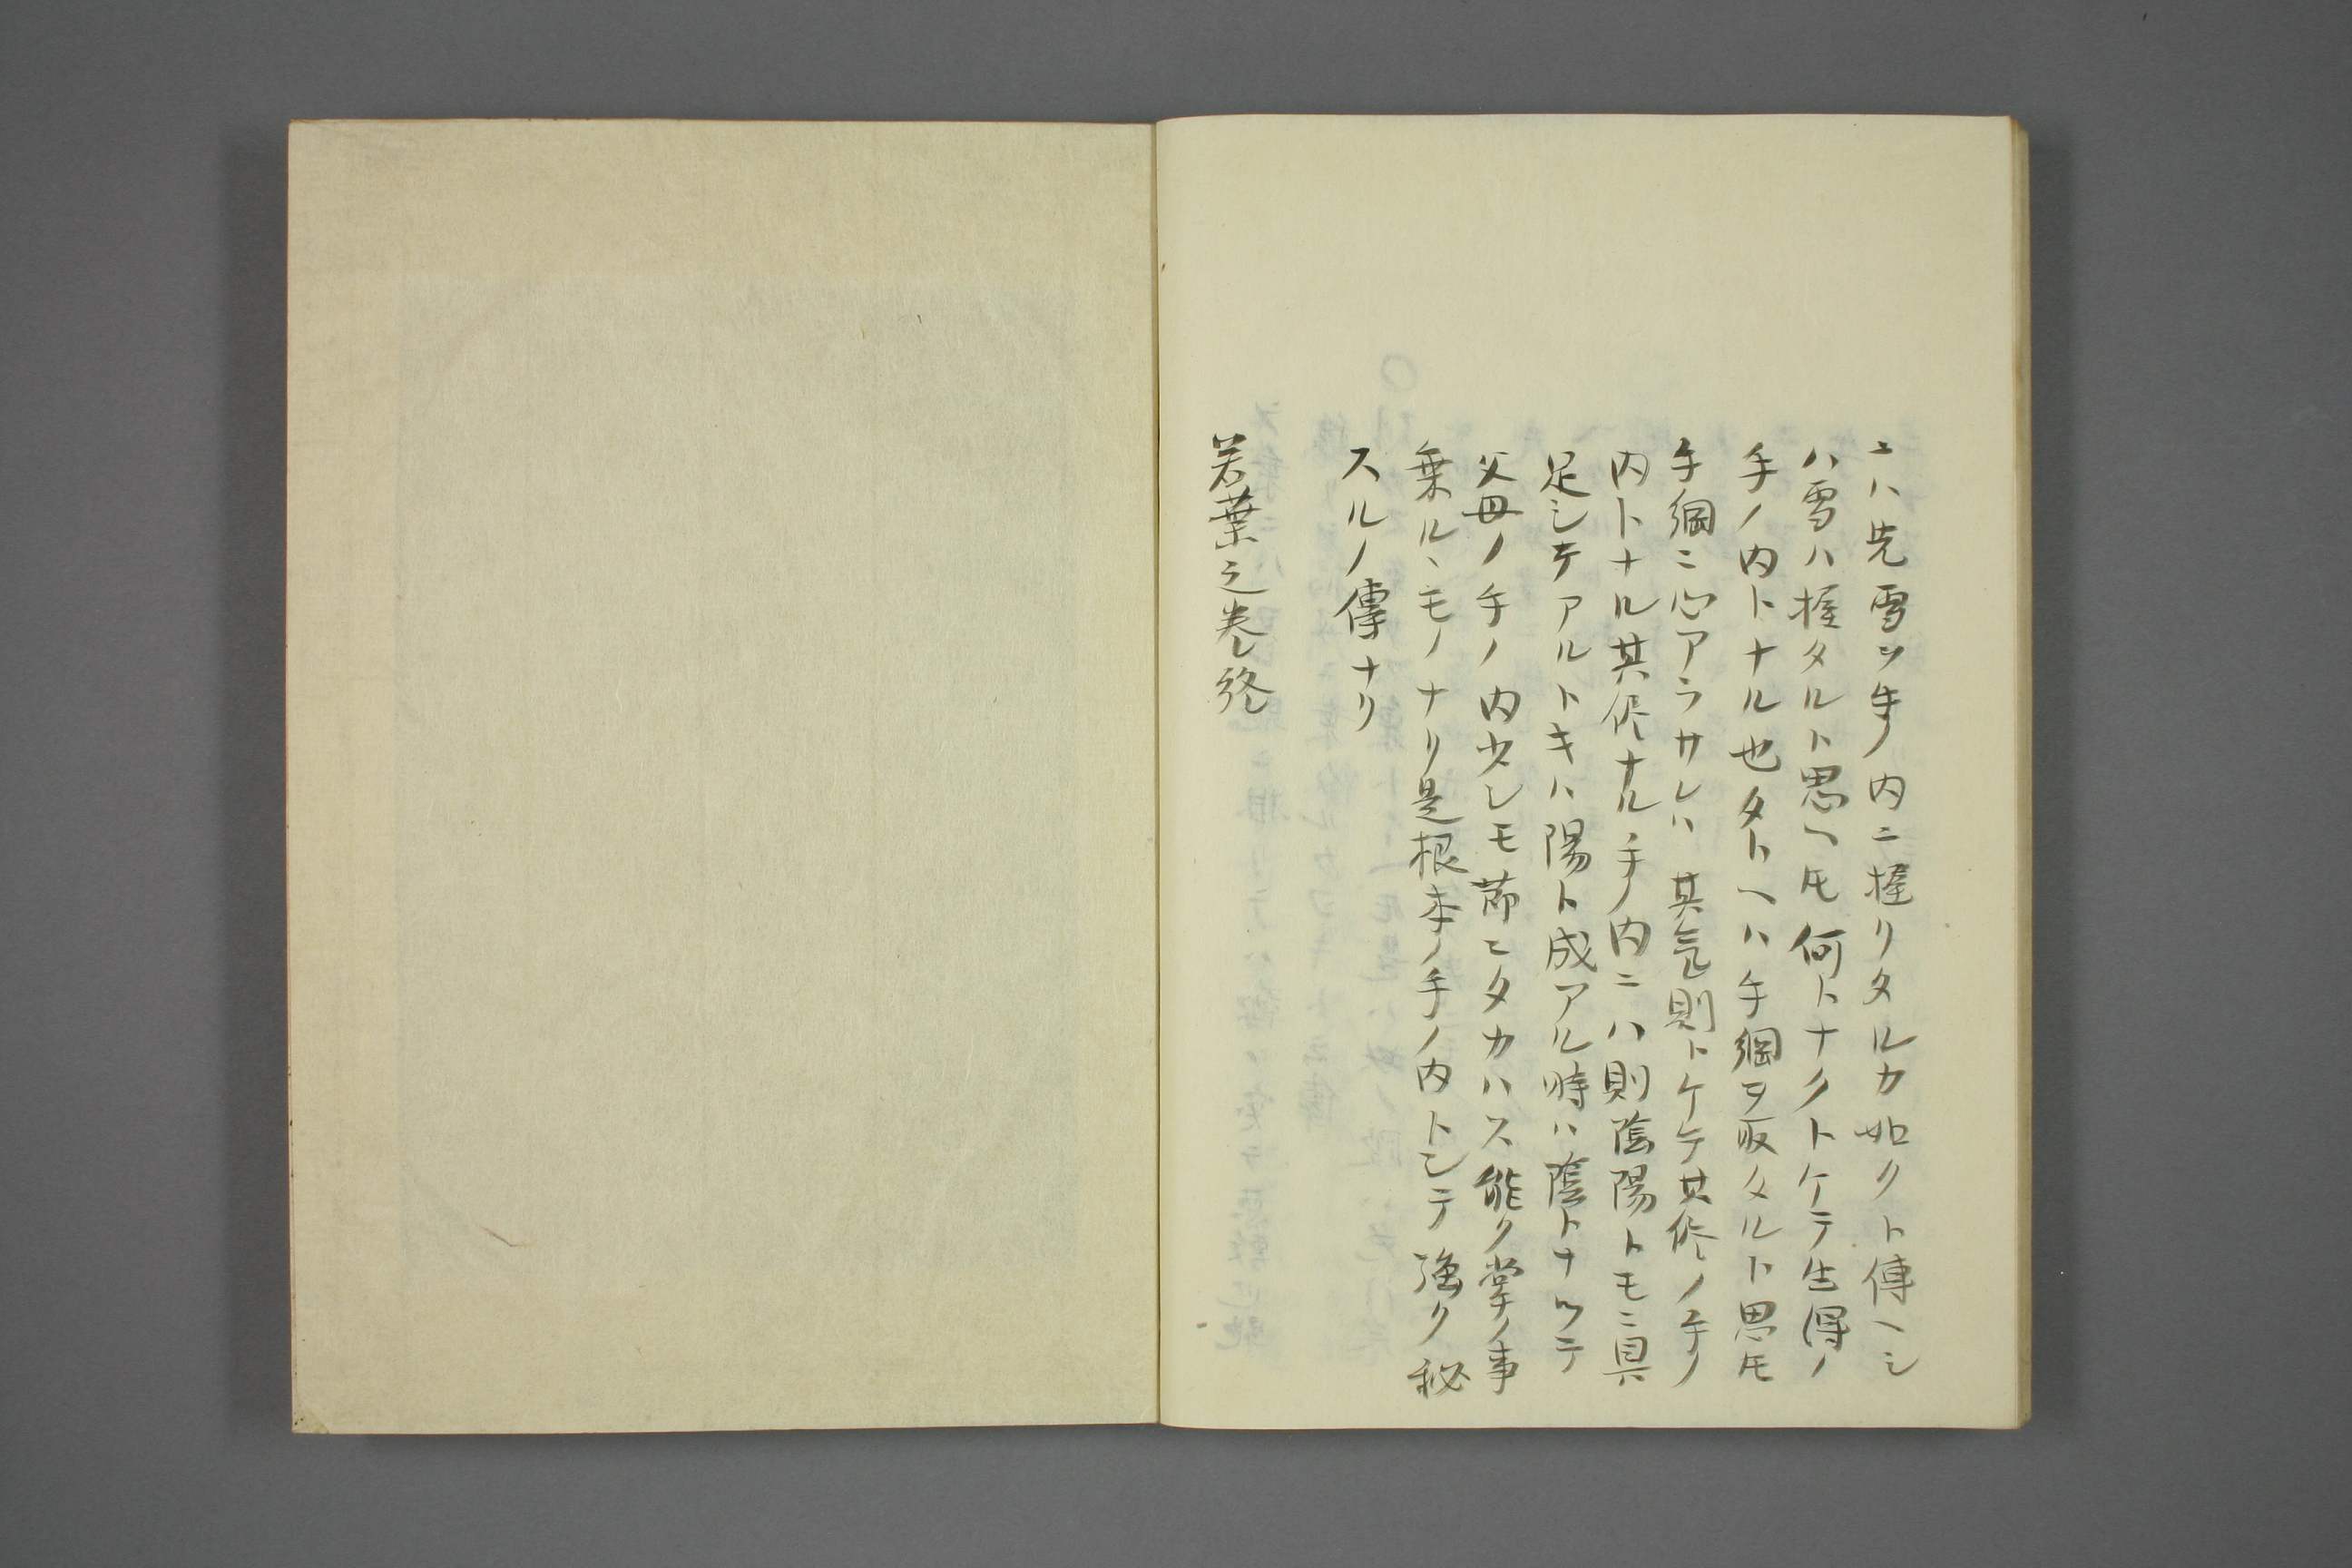 ニハ先雪ヲ手ノ内ニ握リタルカ如クト傳ヘシ
ハ雪ハ握タルト思ヘ𪜈何トナクトケテ生得ノ
手ノ内トナル也タトヘハ手綱ヲ取タルト思𪜈
手綱ニ心アラサレハ其氣則トケテ其侭ノ手ノ
内トナル其侭ナル手ノ内ニハ則陰陽トモニ具
足シテアルトキハ陽ト成アル時ハ陰トナツテ
父母ノ手ノ内少シモ節ニタカハス能ク掌ノ事
乗ルヽモノナリ是根本ノ手ノ内トシテ強ク秘
スルノ傳ナリ
若葉之巻終